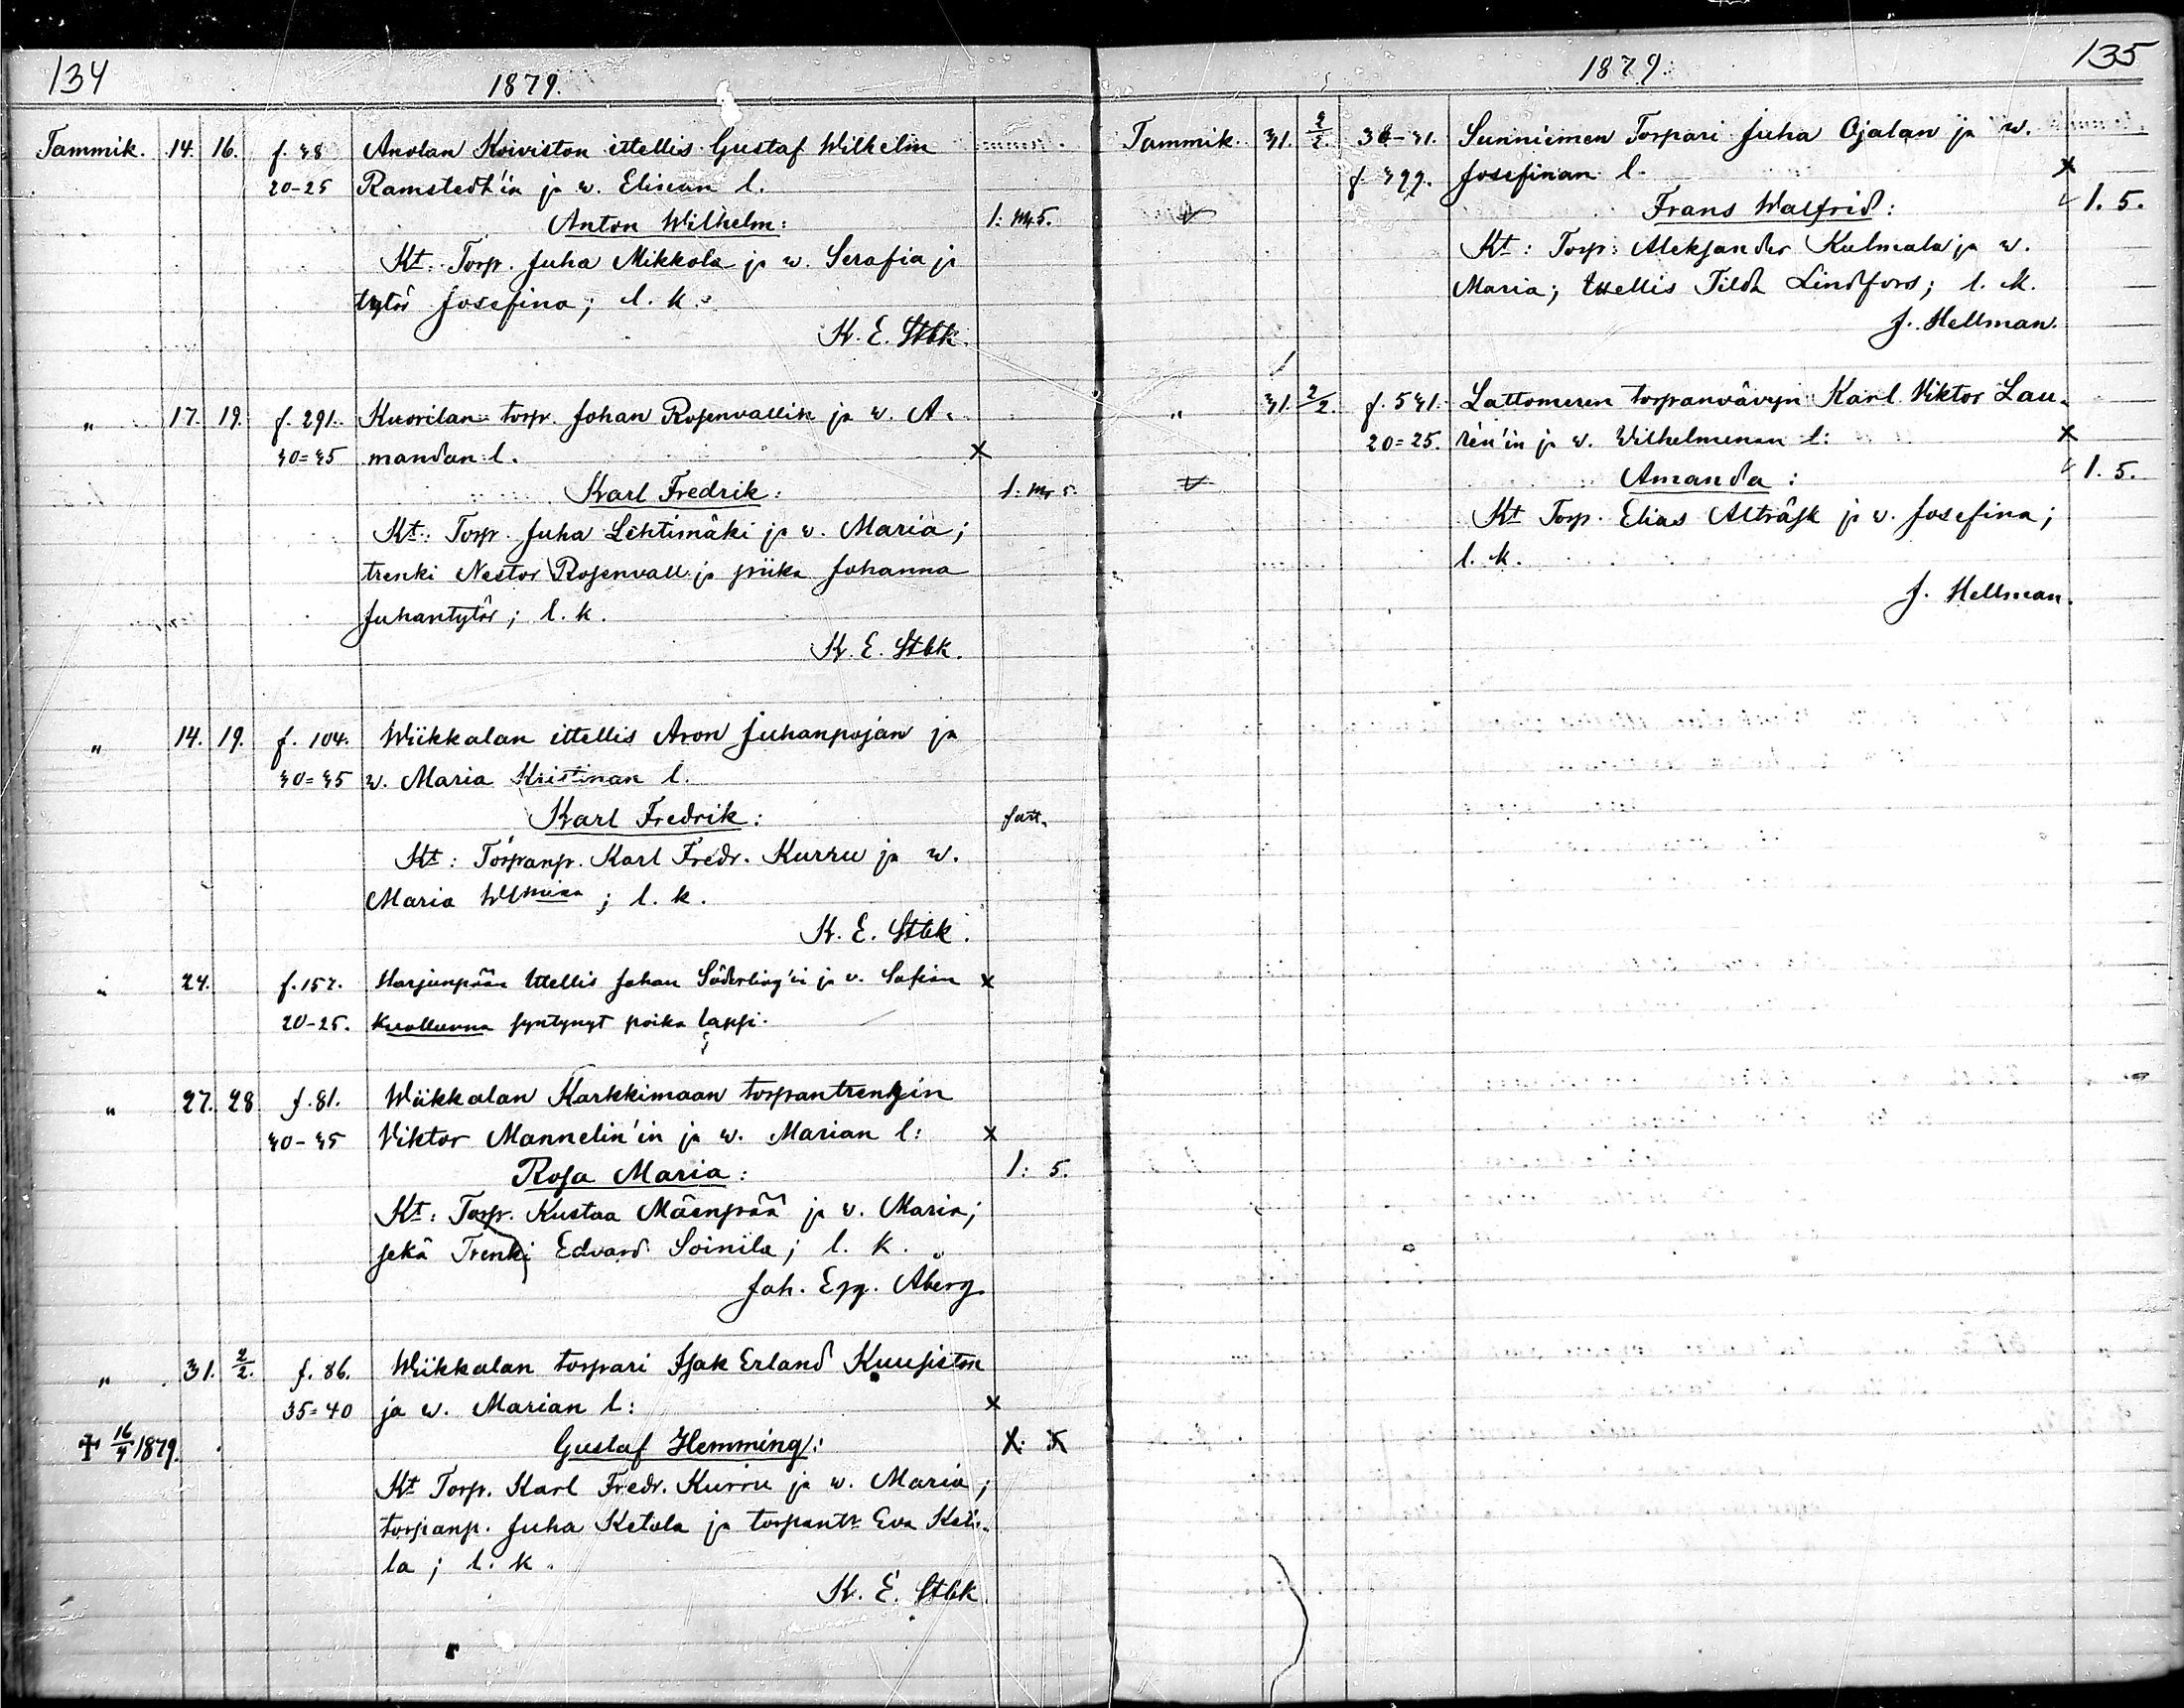 134
1879.
Tammik. 14. 16. f. 38 Anolan Koiviston ittellis Gustaf Wilhelm
20-25 Ramstedt'in ja w. Elisan l.
Anton Wilhelm: 1: mr 5.
Kt: Torp. Juha Mikkola ja w. Serafia ja
tytör Josefina; l. k.
K. E. Stbk.
" 17. 19. f. 291. Kuorilan torp. Johan Rosenvallin ja w. A-
30=35 mandan l. x
Karl Fredrik: 1: mr 5.
Kt: Torp. Juha Lehtimäki ja w. Maria;
trenki Nestor Rosenvall ja piika Johanna
Juhantytör; l. k.
K. E. Stbk.
" 14. 19. f. 104. Wiikkalan ittellis Aron Juhanpojan ja
30=35 w. Maria Kristinan l.
Karl Fredrik: fatt.
Kt: Torpanp. Karl Fredr. Kurru ja w.
Maria Wlmina; l. k.
K. E. Stbk.
" 24. f. 157. Harjunpään Ittellis Johan Söderling'in ja v. Sofian x
20-25. kuolluna syntynyt poika lapsi.
" 27. 28. f. 81. Wiikkalan Karkkimaan torpantrengin
30-35 Viktor Mannelin'in ja w. Marian l: x
Rosa Maria: 1: 5.
Kt: Torp. Kustaa Mäenpää ja v. Maria;
sekä Trenki Edvard Soinila; l. k.
Joh. Åberg
" 31. 2/2. f. 86. Wiikkalan torpari Isak Erland Kuusiston
35=40 ja w. Marian l: x
✝ 16/4 1879. Gustaf Hemming: 1: 5
Kt Torp. Karl Fredr. Kurru ja w. Maria;
torpanp. Juha Ketola ja torpantr Eva Keti-
la; l. k.
K. E. Stbk
1879.
135
Tammik. 31. 2/2. 30-31. Sunniemen Torpari Juha Ojalan ja w.
f. 399. Josefinan l. x
Frans Walfrid: 1. 5.
Kt: Torp: Aleksander Kulmala ja w.
Maria; Ittellis Tilda Lindfors; l. k.
J. Hellman.
" 31. 2/2. f. 531. Lattomeren torpanvävyn Karl Viktor Lau-
20=25. rén'in ja w. Wilhelminan l: x
Amanda: 1. 5.
Kt Torp. Elias Alträsk ja w. Josefina;
l. k.
J. Hellman.